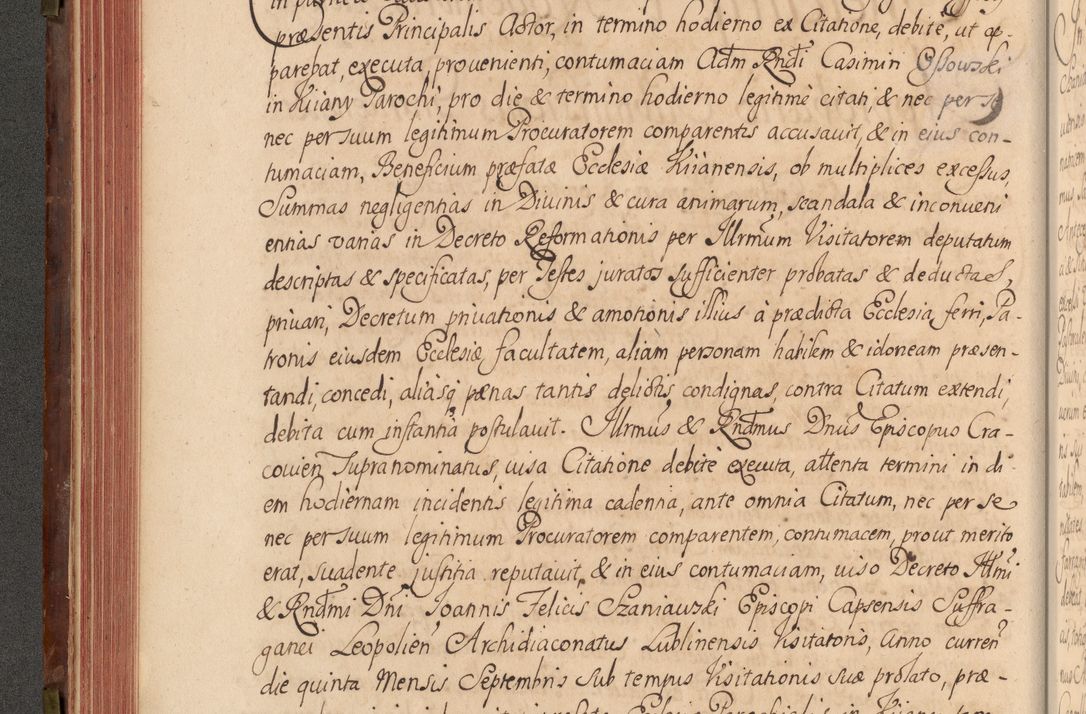 præsentis Principalis Actor, in termino hodierno ex Citatione, debite, ut ap-
parebat, executa, provenienti, contumaciam Adm Rndi Casimiri Ossowski
in Kiiany Parochi, pro die & termino hodierno legitime citati, & nec per se
nec per suum legitimum Procuratorem comparentis accusavit, & in eius con-
tumaciam, Beneficium præfatæ Ecclesiæ Kiianensis, ob multiplices excessus,
Summas negligentias in Divinis & cura animarum, scandala & inconveni
entias varias in Decreto Reformationis per Illrmum Visitatorem deputatum
descriptas & specificatas, per Testes juratos sufficienter probatas & deductas,
privari, Decretum privationis & amotionis illius à prædicta Ecclesia ferri, Pa-
tronis eiusdem Ecclesiæ facultatem, aliam personam habilem & idoneam præsen-
tandi, concedi, aliàsq pænas tantis delictis condignas, contra Citatum extendi,
debita cum instantia postulavit. Illrmus & Rndmus Dnus Episcopus Cra-
covien Supranominatus, visa Citatione debite executa, attenta termini in di-
em hodiernam incidentis legitima cadentia, ante omnia Citatum, nec per se
nec per suum legitimum Procuratorem comparentem, contumacem, prout merito
erat, suadente justitia reputavit, & in eius contumaciam, viso Decreto Illmi
& Rndmi Dni Joannis Felicis Szaniawski Episcopi Capsensis Suffra-
ganei Leopolien Archidiaconatus Lublinensis Visitatoris, Anno curren
die quinta Mensis Septembris Sub tempus Visitationis suæ prolato, præ-